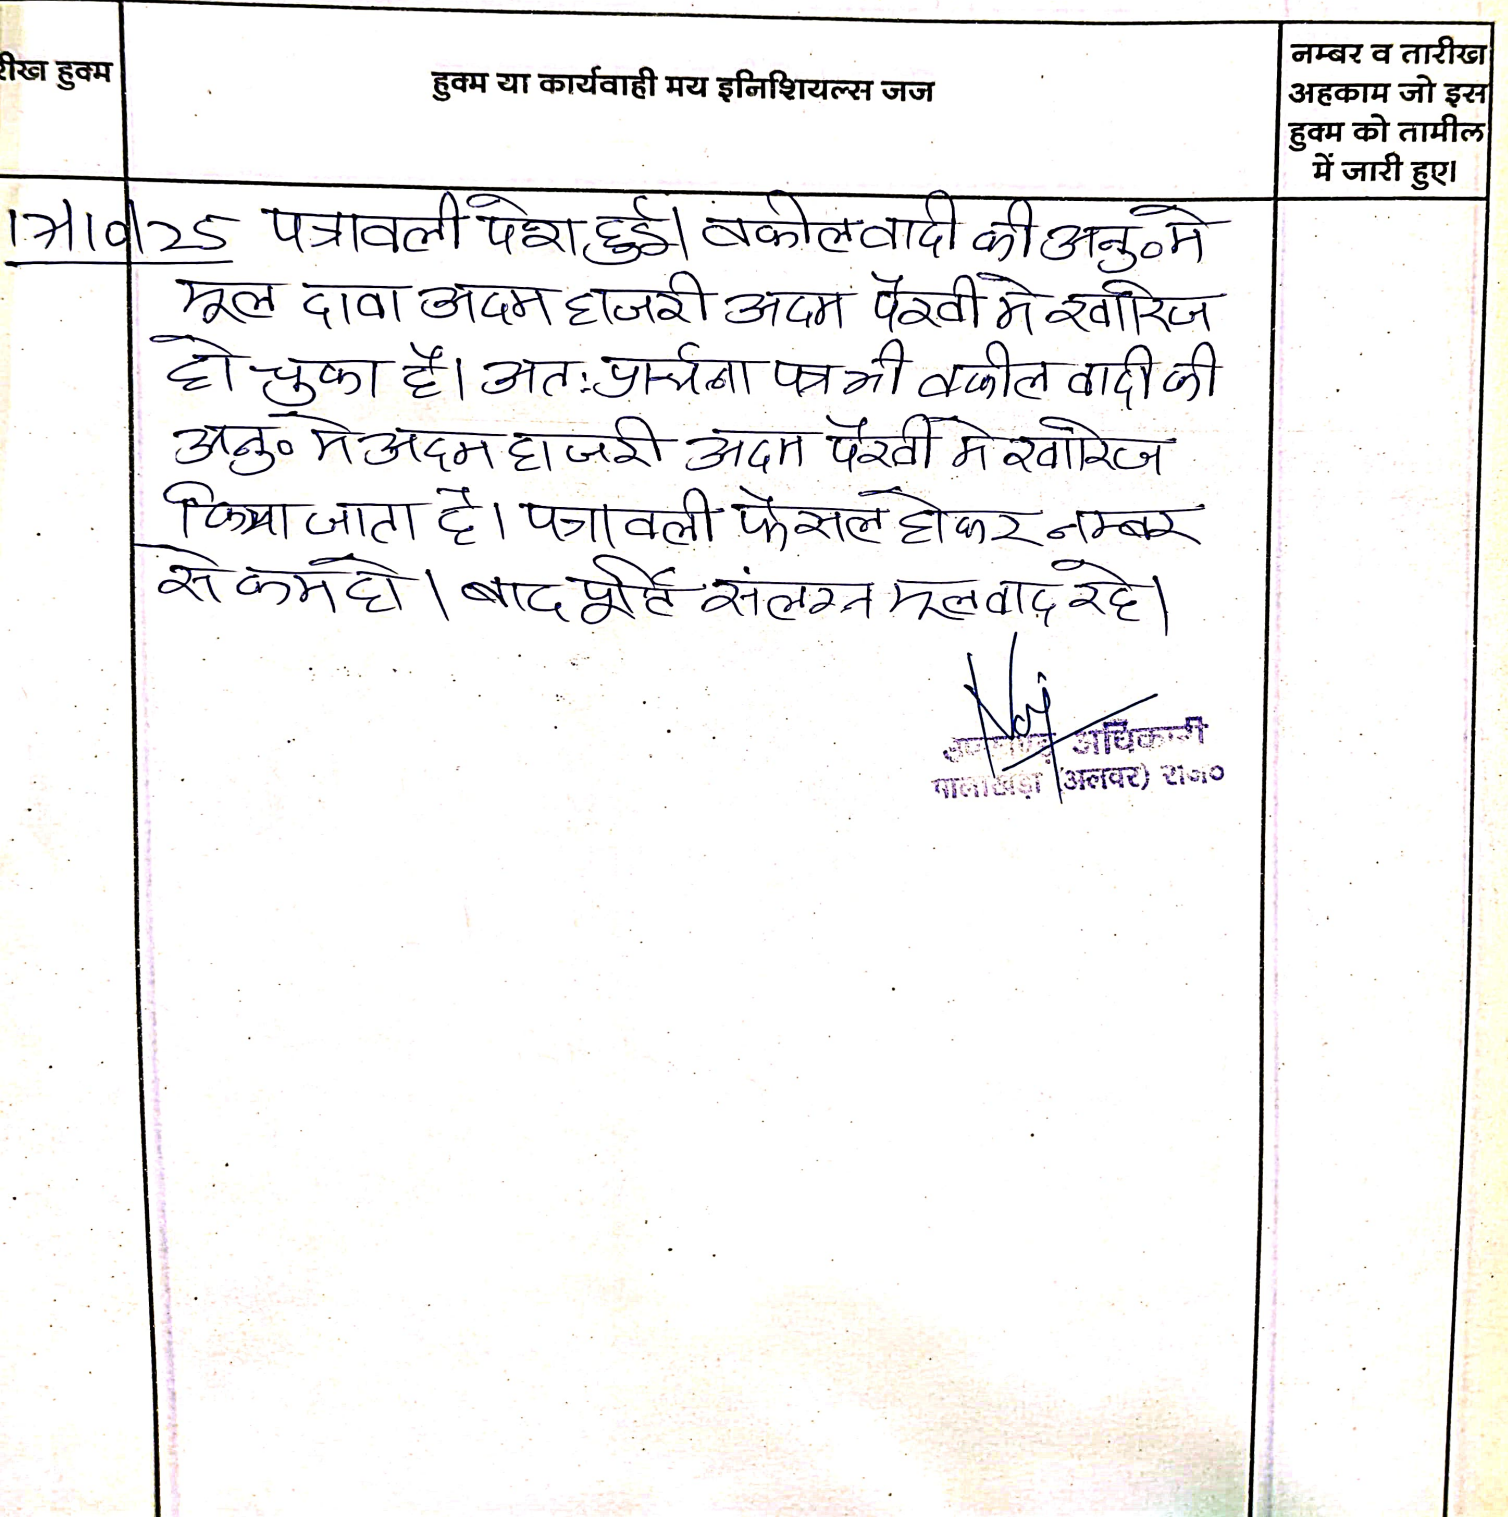 रीख हुक्म
हुक्म या कार्यवाही मय इनिशियल्स जज
नम्बर व तारीख
अहकाम जो इस
हुक्म को तामील
में जारी हुए।
पत्रावली पेश हुई। वकील वादी की अनु० मे
मूल दावा अदम हाजरी अदम पैरवी मे खारिज
हो चुका है। अतः प्रार्थना पत्र भी वकील वादी की
अनु० मे अदम हाजरी अदम पैरवी मे खारिज
किया जाता है। पत्रावली फैसल होकर नम्बर
से कम हो। बाद पूर्ति संलग्न मूलवाद रहे।
अधिकारी
(अलवर) राज०